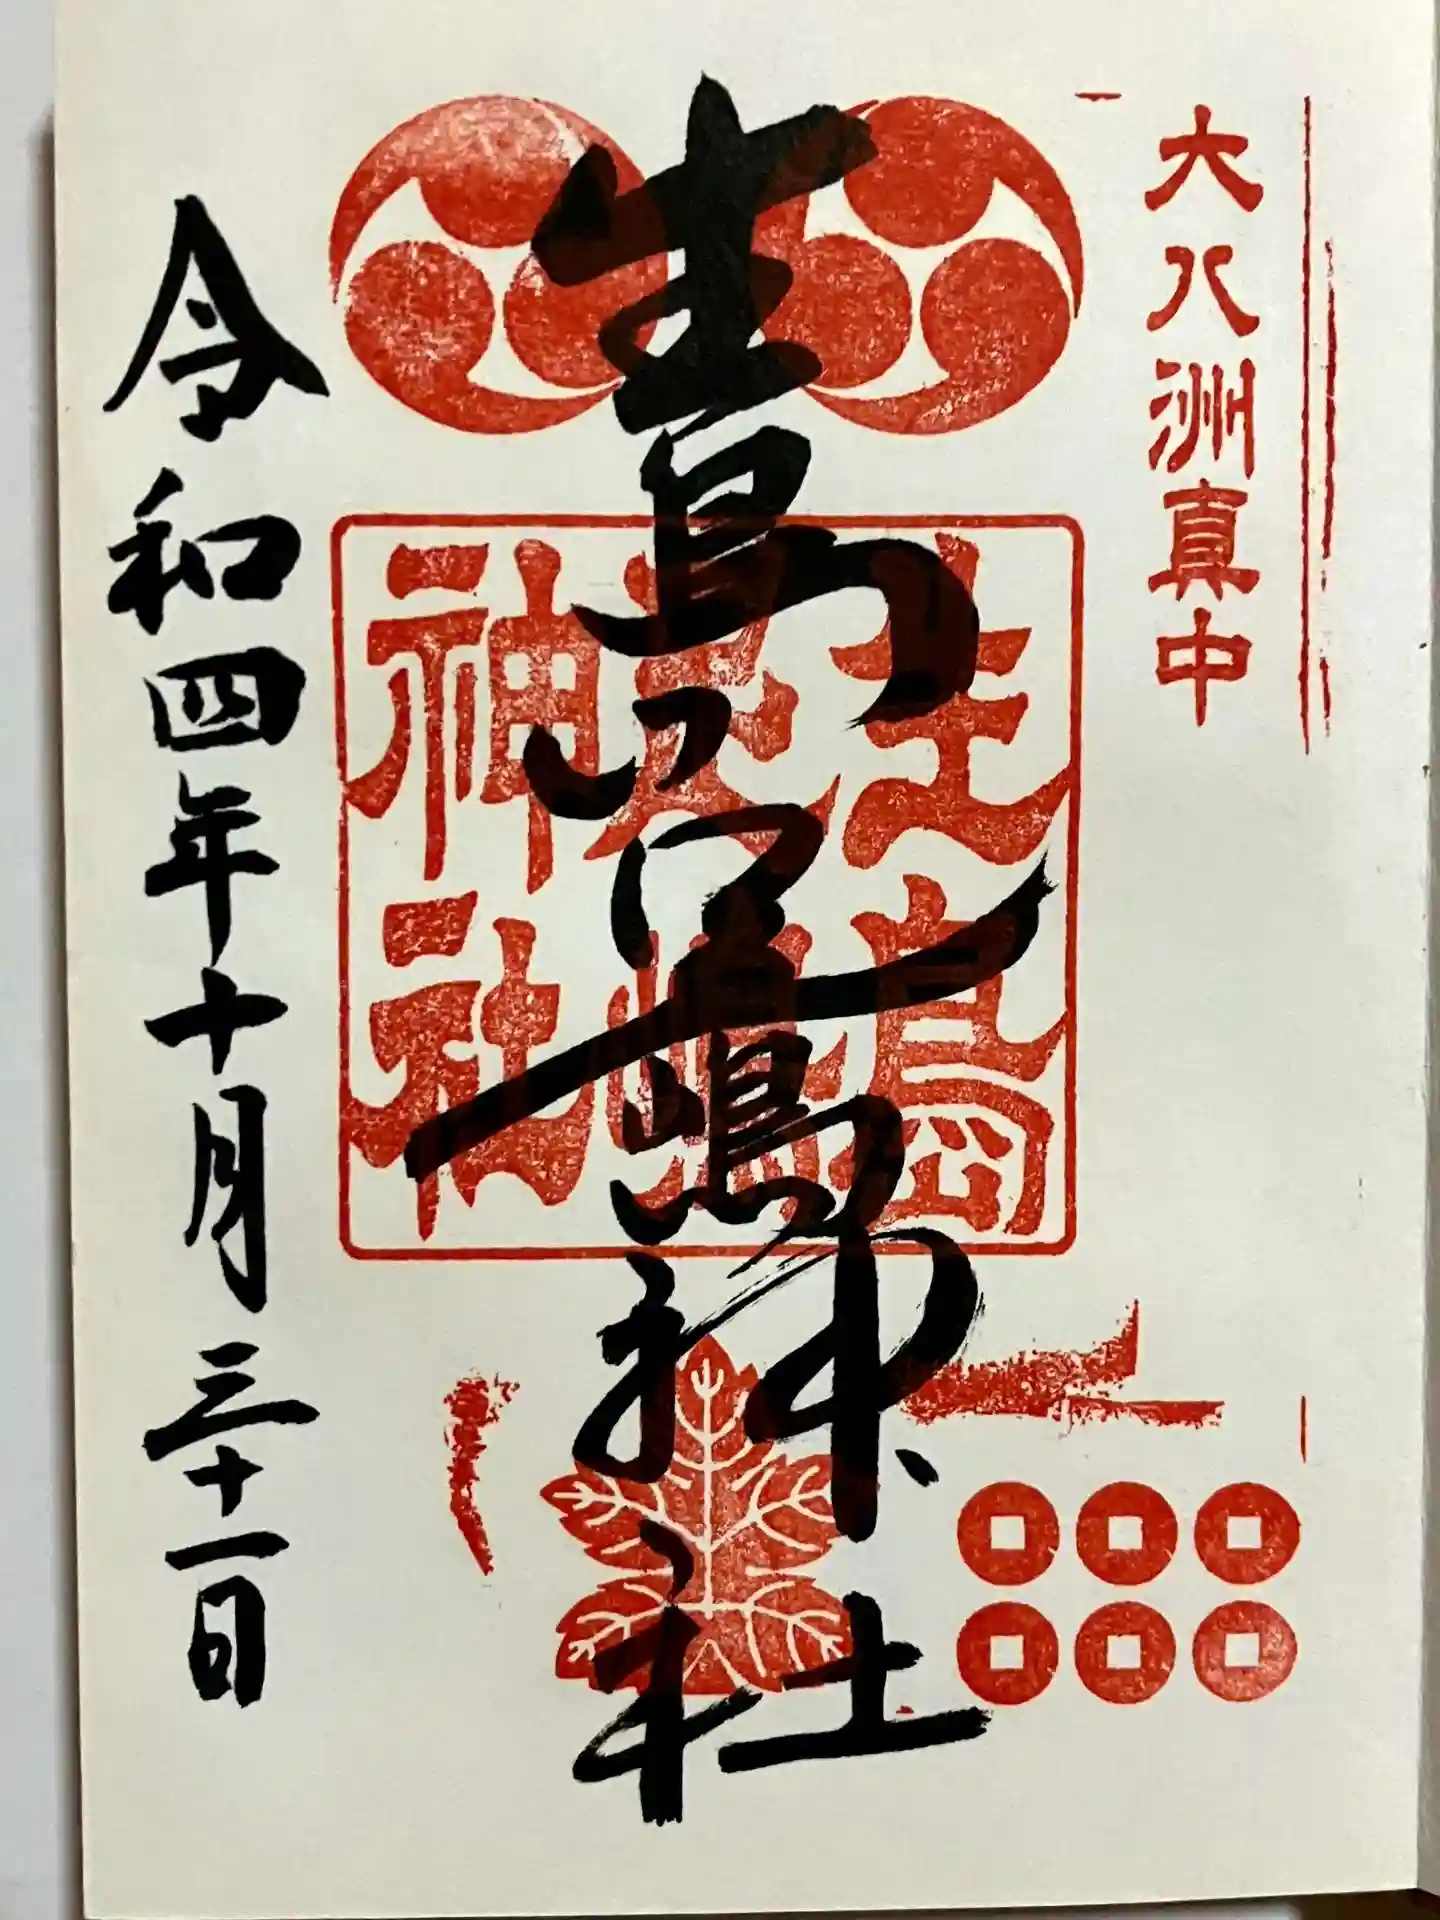 大八洲真中
生島足嶋神社
生島
足嶋
神社
令和四年十月三十一日